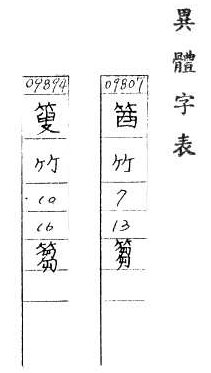 異體字表
09807
竹
7
13
篘
09894
竹
10
16
篘